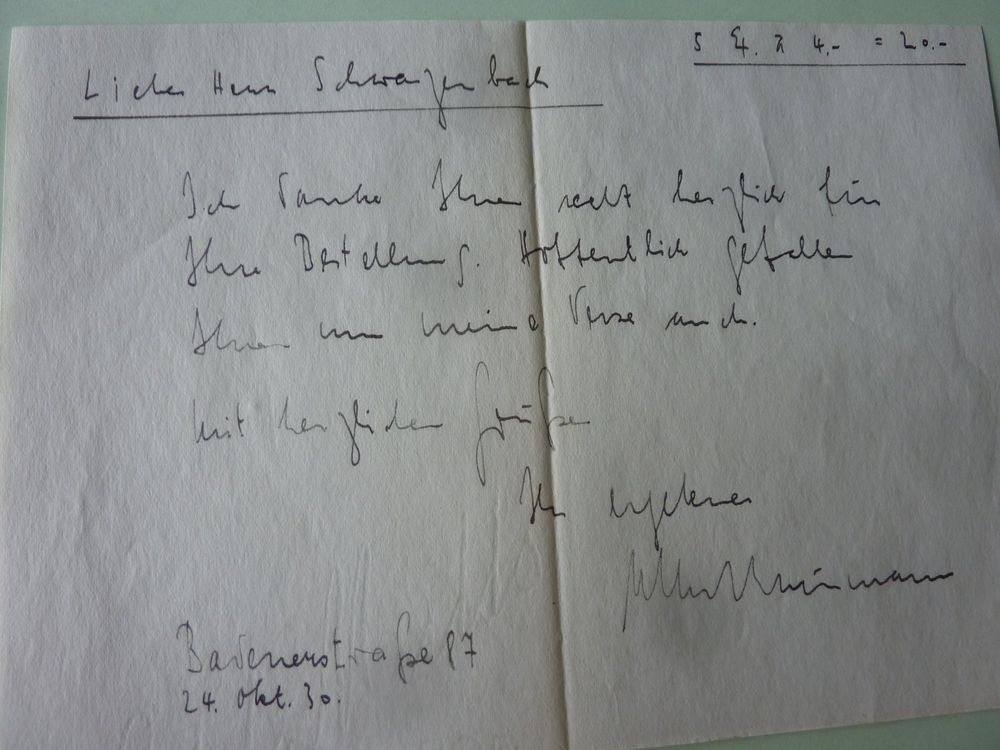 5 Ex. à 4.- = 20.-
Lieber Herr Schwarzenbach
Ich danke Ihnen recht herzlich für
Ihre Bestellung. Hoffentlich gefallen
Ihnen nun meine Verse auch.
Mit herzlichen Grüßen
Ihr ergebener
Badenerstraße 87
24. Okt. 30.